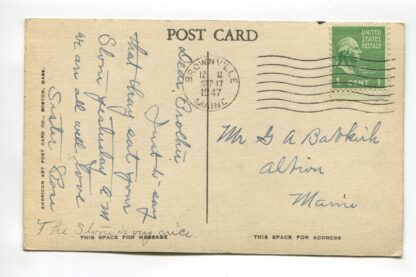 POST CARD
BROWNVILLE
12 M
SEP 17
1947
MAINE
UNITED STATES
POSTAGE
1 CENT 1
Dear Brother
Just to say
that they sat your
Stove Saturday P.M
We are all well. Love
Sister Rose
The Stove is very nice
Mr G A Babkirk
Albion
Maine
AMERICAN ART POST CARD CO., BOSTON, MASS.
THIS SPACE FOR MESSAGE
THIS SPACE FOR ADDRESS